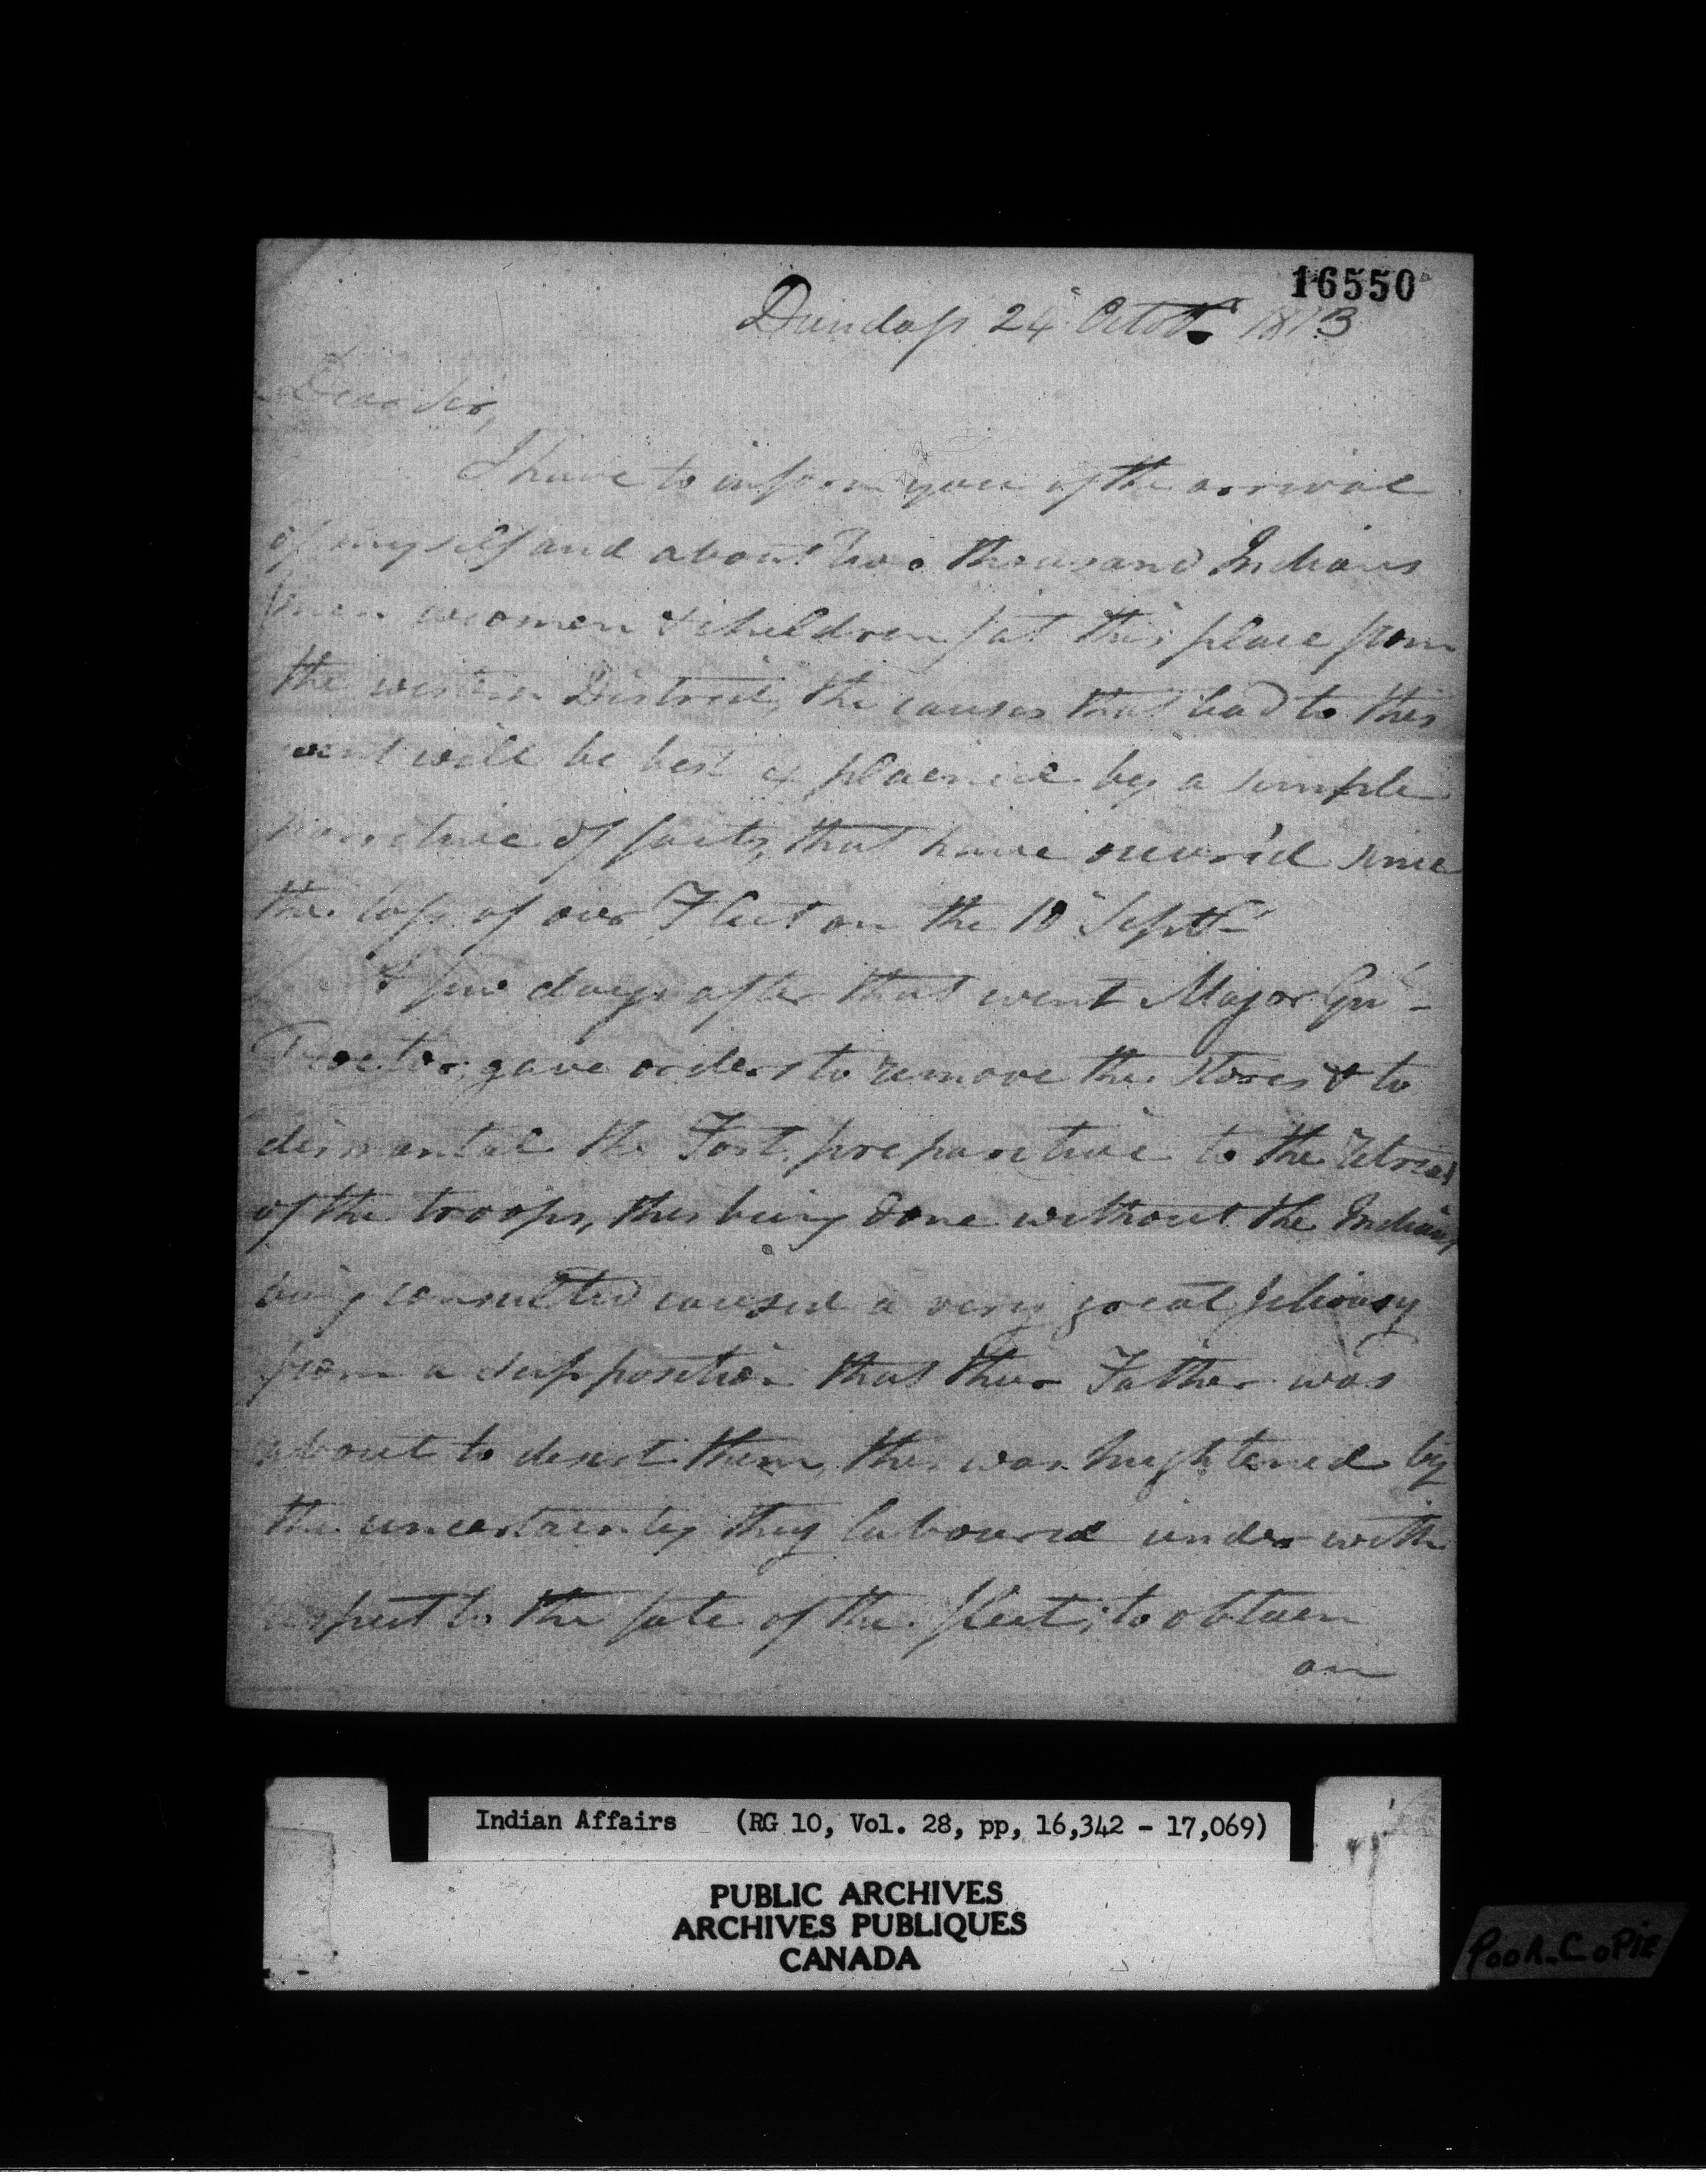 16550
Dundass 24 Octobr 1813
Dear Sir,
I have to inform you of the arrival
of myself and about Two thousand Indians
(men women & children) at this place from
the western District, the causes that lead to this
event will be best explained by a simple
narrative of facts, that have occur'd since
the loss of our Fleet on the 10 Septr
A few days after that event Major Gnl
Proctor gave orders to remove the Stores & to
dismantal the Fort, preparative to the retreat
of the troops, this being done without the Indians,
being consulted caused a very great Jelousy
from a supposition that their Father was
about to desert them, this was hightened by
the uncertainty they laboured under with
respect to the fate of the fleet; to obtain
an
Indian Affairs (RG 10, Vol. 28, pp, 16,342 - 17,069)
PUBLIC ARCHIVES
ARCHIVES PUBLIQUES
CANADA
POOR COPIE